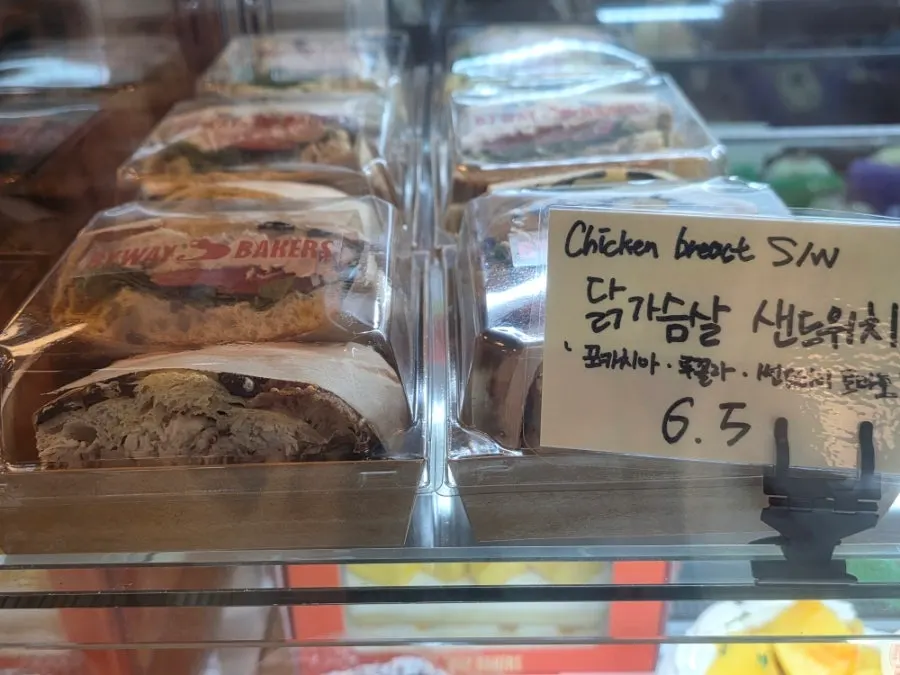 BYWAY BAKERS
Chicken breast S/W
닭가슴살 샌드위치
포카치아 · 루꼴라 · 썬드라이 토마토
6.5